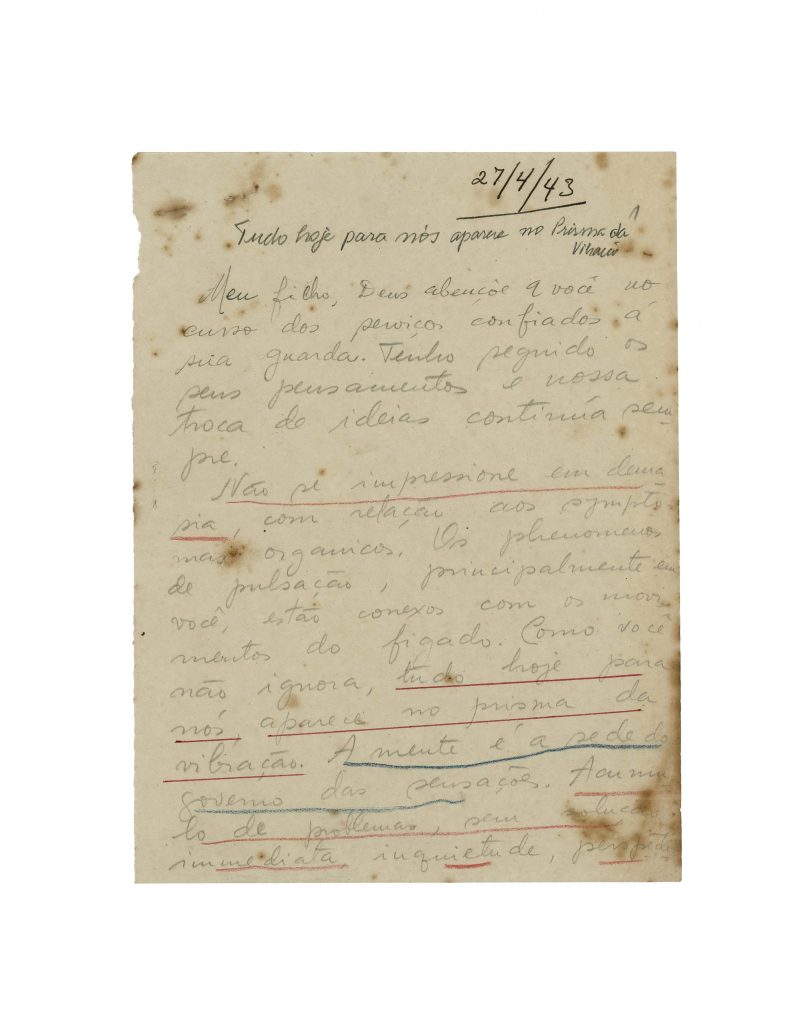 27/4/43
Tudo hoje para nós aparece no Prisma da
Meu filho, Deus abençõe a você no
curso dos serviços confiados á
sua guarda. Tenho seguido os
seus pensamentos e nossa
troca de ideias continúa sem-
pre.
Não se impressione em dema
sia, com relação aos sympto
mas organicos. Os phenomenos
de pulsação, principalmente em
você, estão conexos com os movi
mentos do figado. Como você
não ignora, tudo hoje para
nós, aparece no prisma da
vibração. A mente é a sede do
governo das sensações. Acumu
lo de problemas, sem solução
immediata, inquietude,